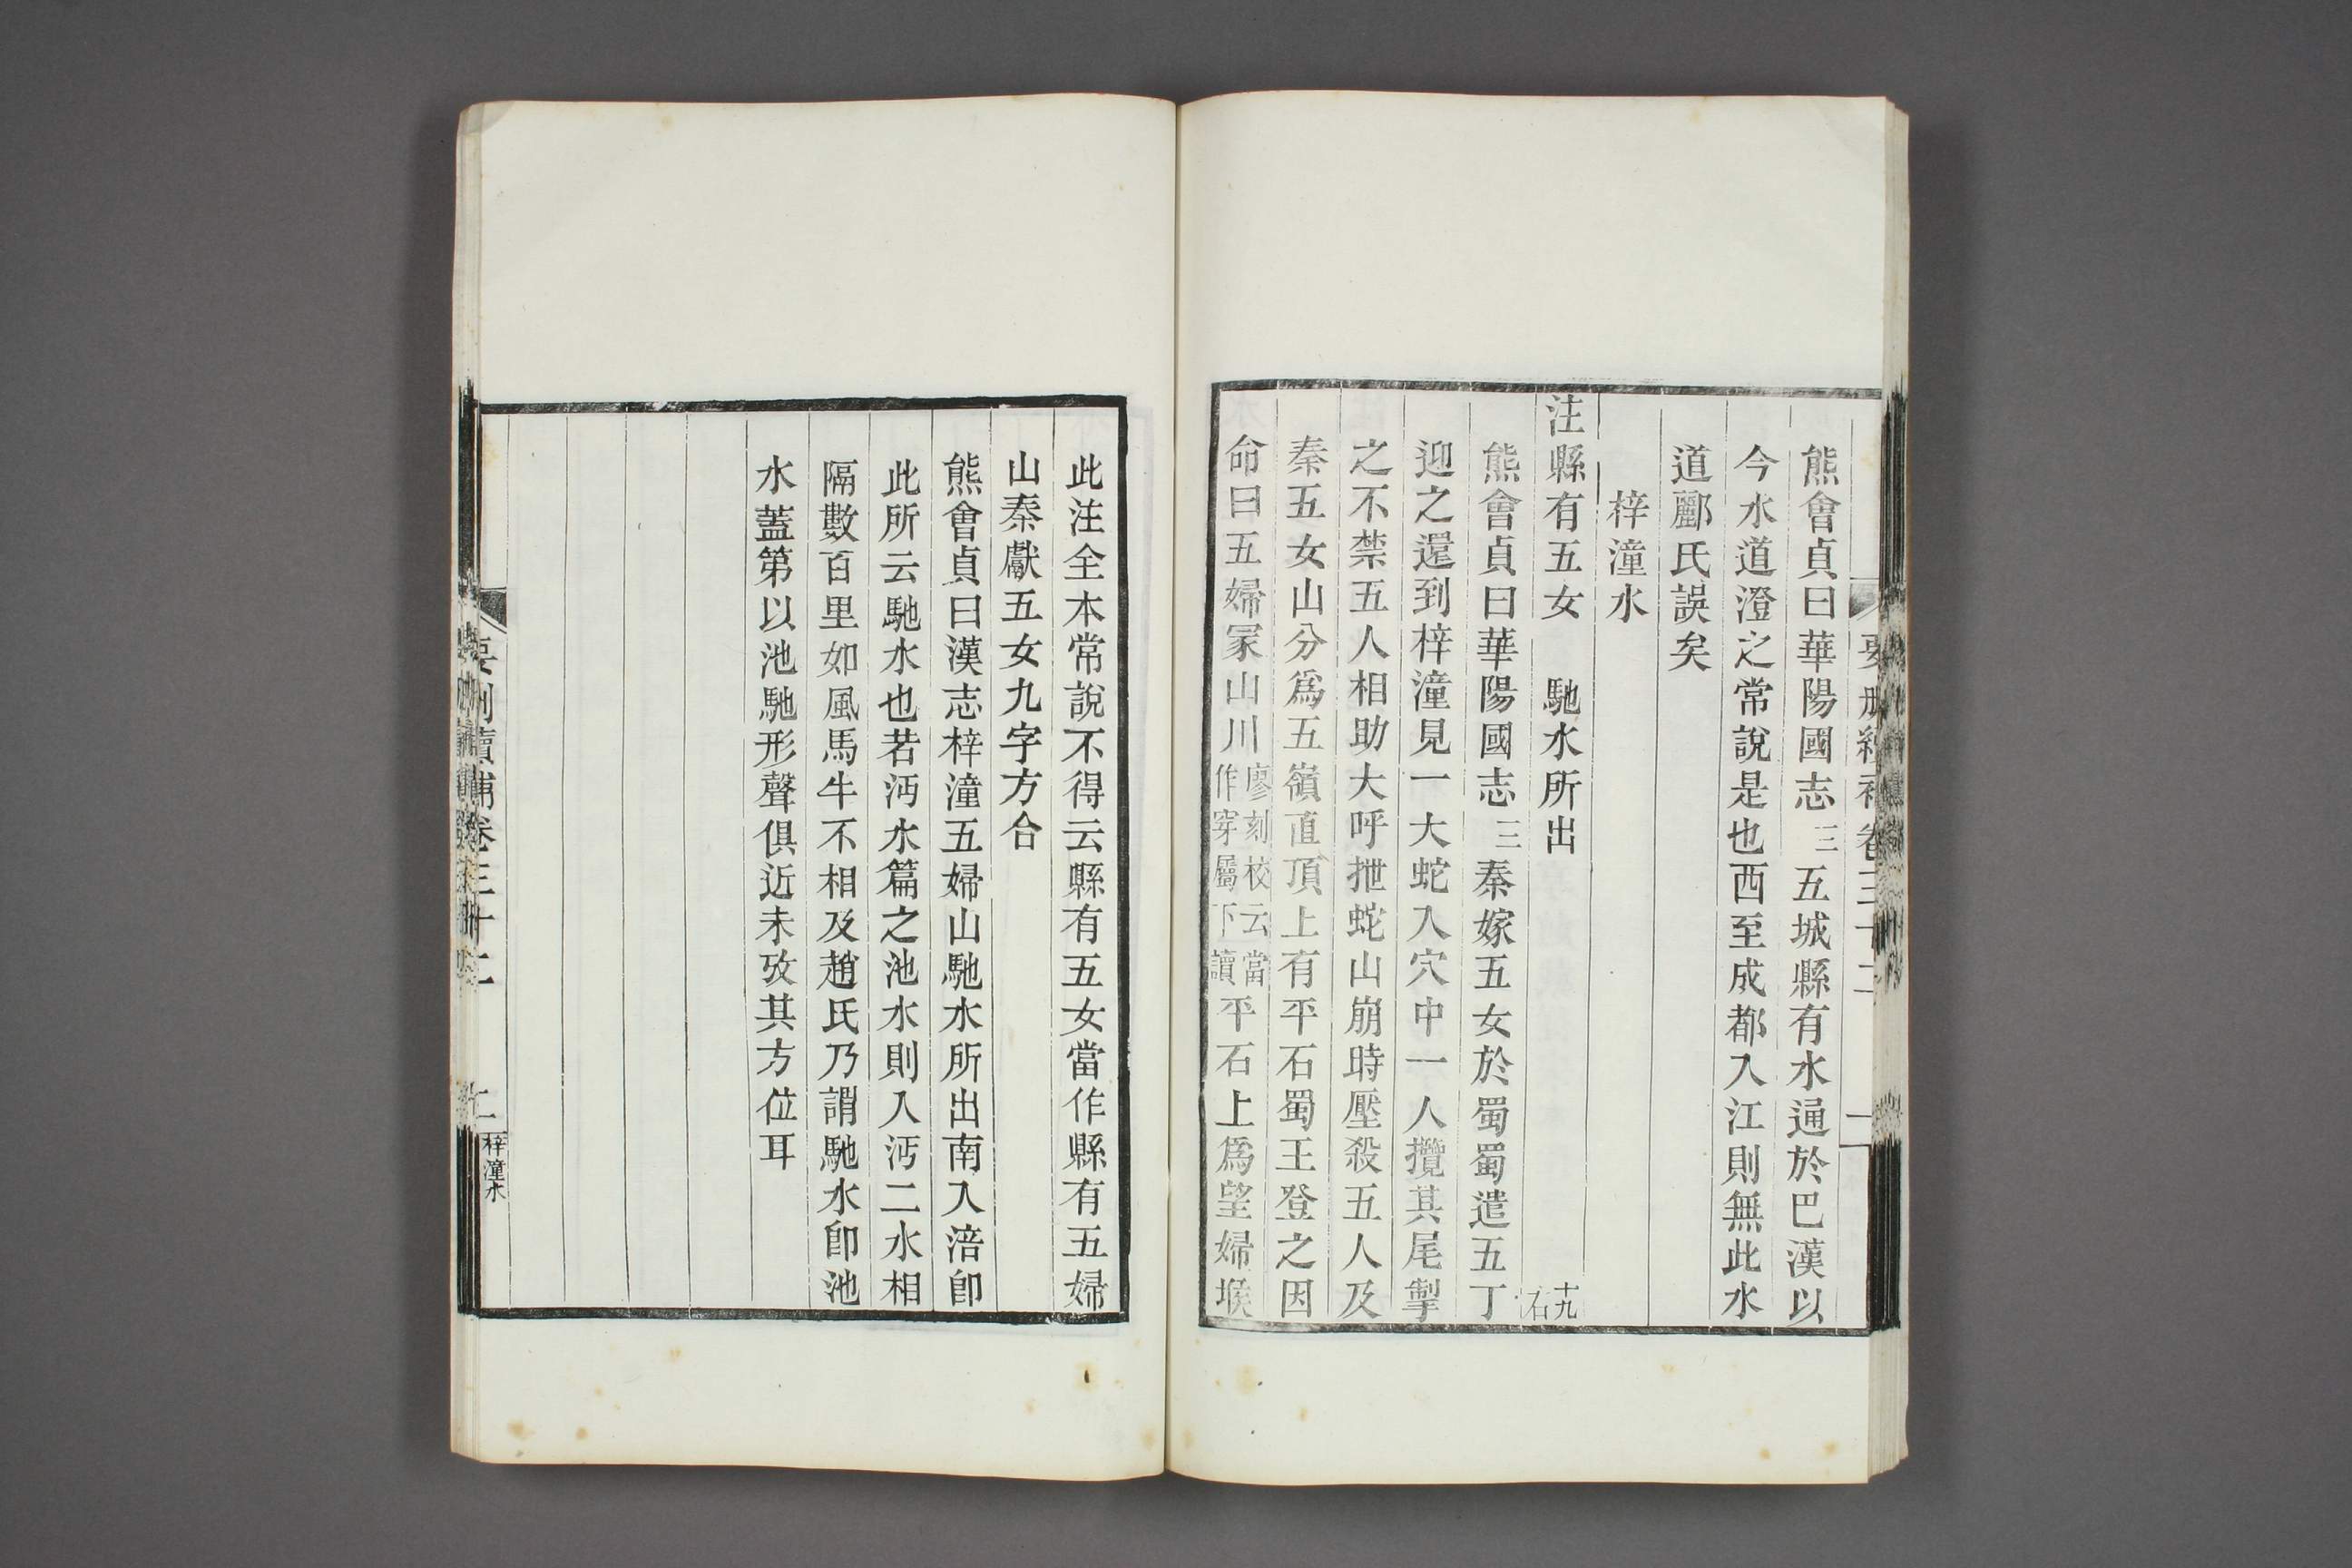 熊會貞曰華陽國志三五城縣有水通於巴漢以
今水道澄之常說是也西至成都入江則無此水
道酈氏誤矣
梓潼水
注縣有五女　馳水所出　十九右
熊會貞曰華陽國志三秦嫁五女於蜀蜀遣五丁
迎之還到梓潼見一大蛇入穴中一人攬其尾掣
之不禁五人相助大呼抴蛇山崩時壓殺五人及
秦五女山分爲五嶺直頂上有平石蜀王登之因
命曰五婦冢山川廖刻校云當作穿屬下讀平石上爲望婦堠
此注全本常說不得云縣有五女當作縣有五婦
山秦獻五女九字方合
熊會貞曰漢志梓潼五婦山馳水所出南入涪卽
此所云馳水也若沔水篇之池水則入沔二水相
隔數百里如風馬牛不相及趙氏乃謂馳水卽池
水蓋第以池馳形聲俱近未攷其方位耳
要刪續補卷三十二
二
梓潼水